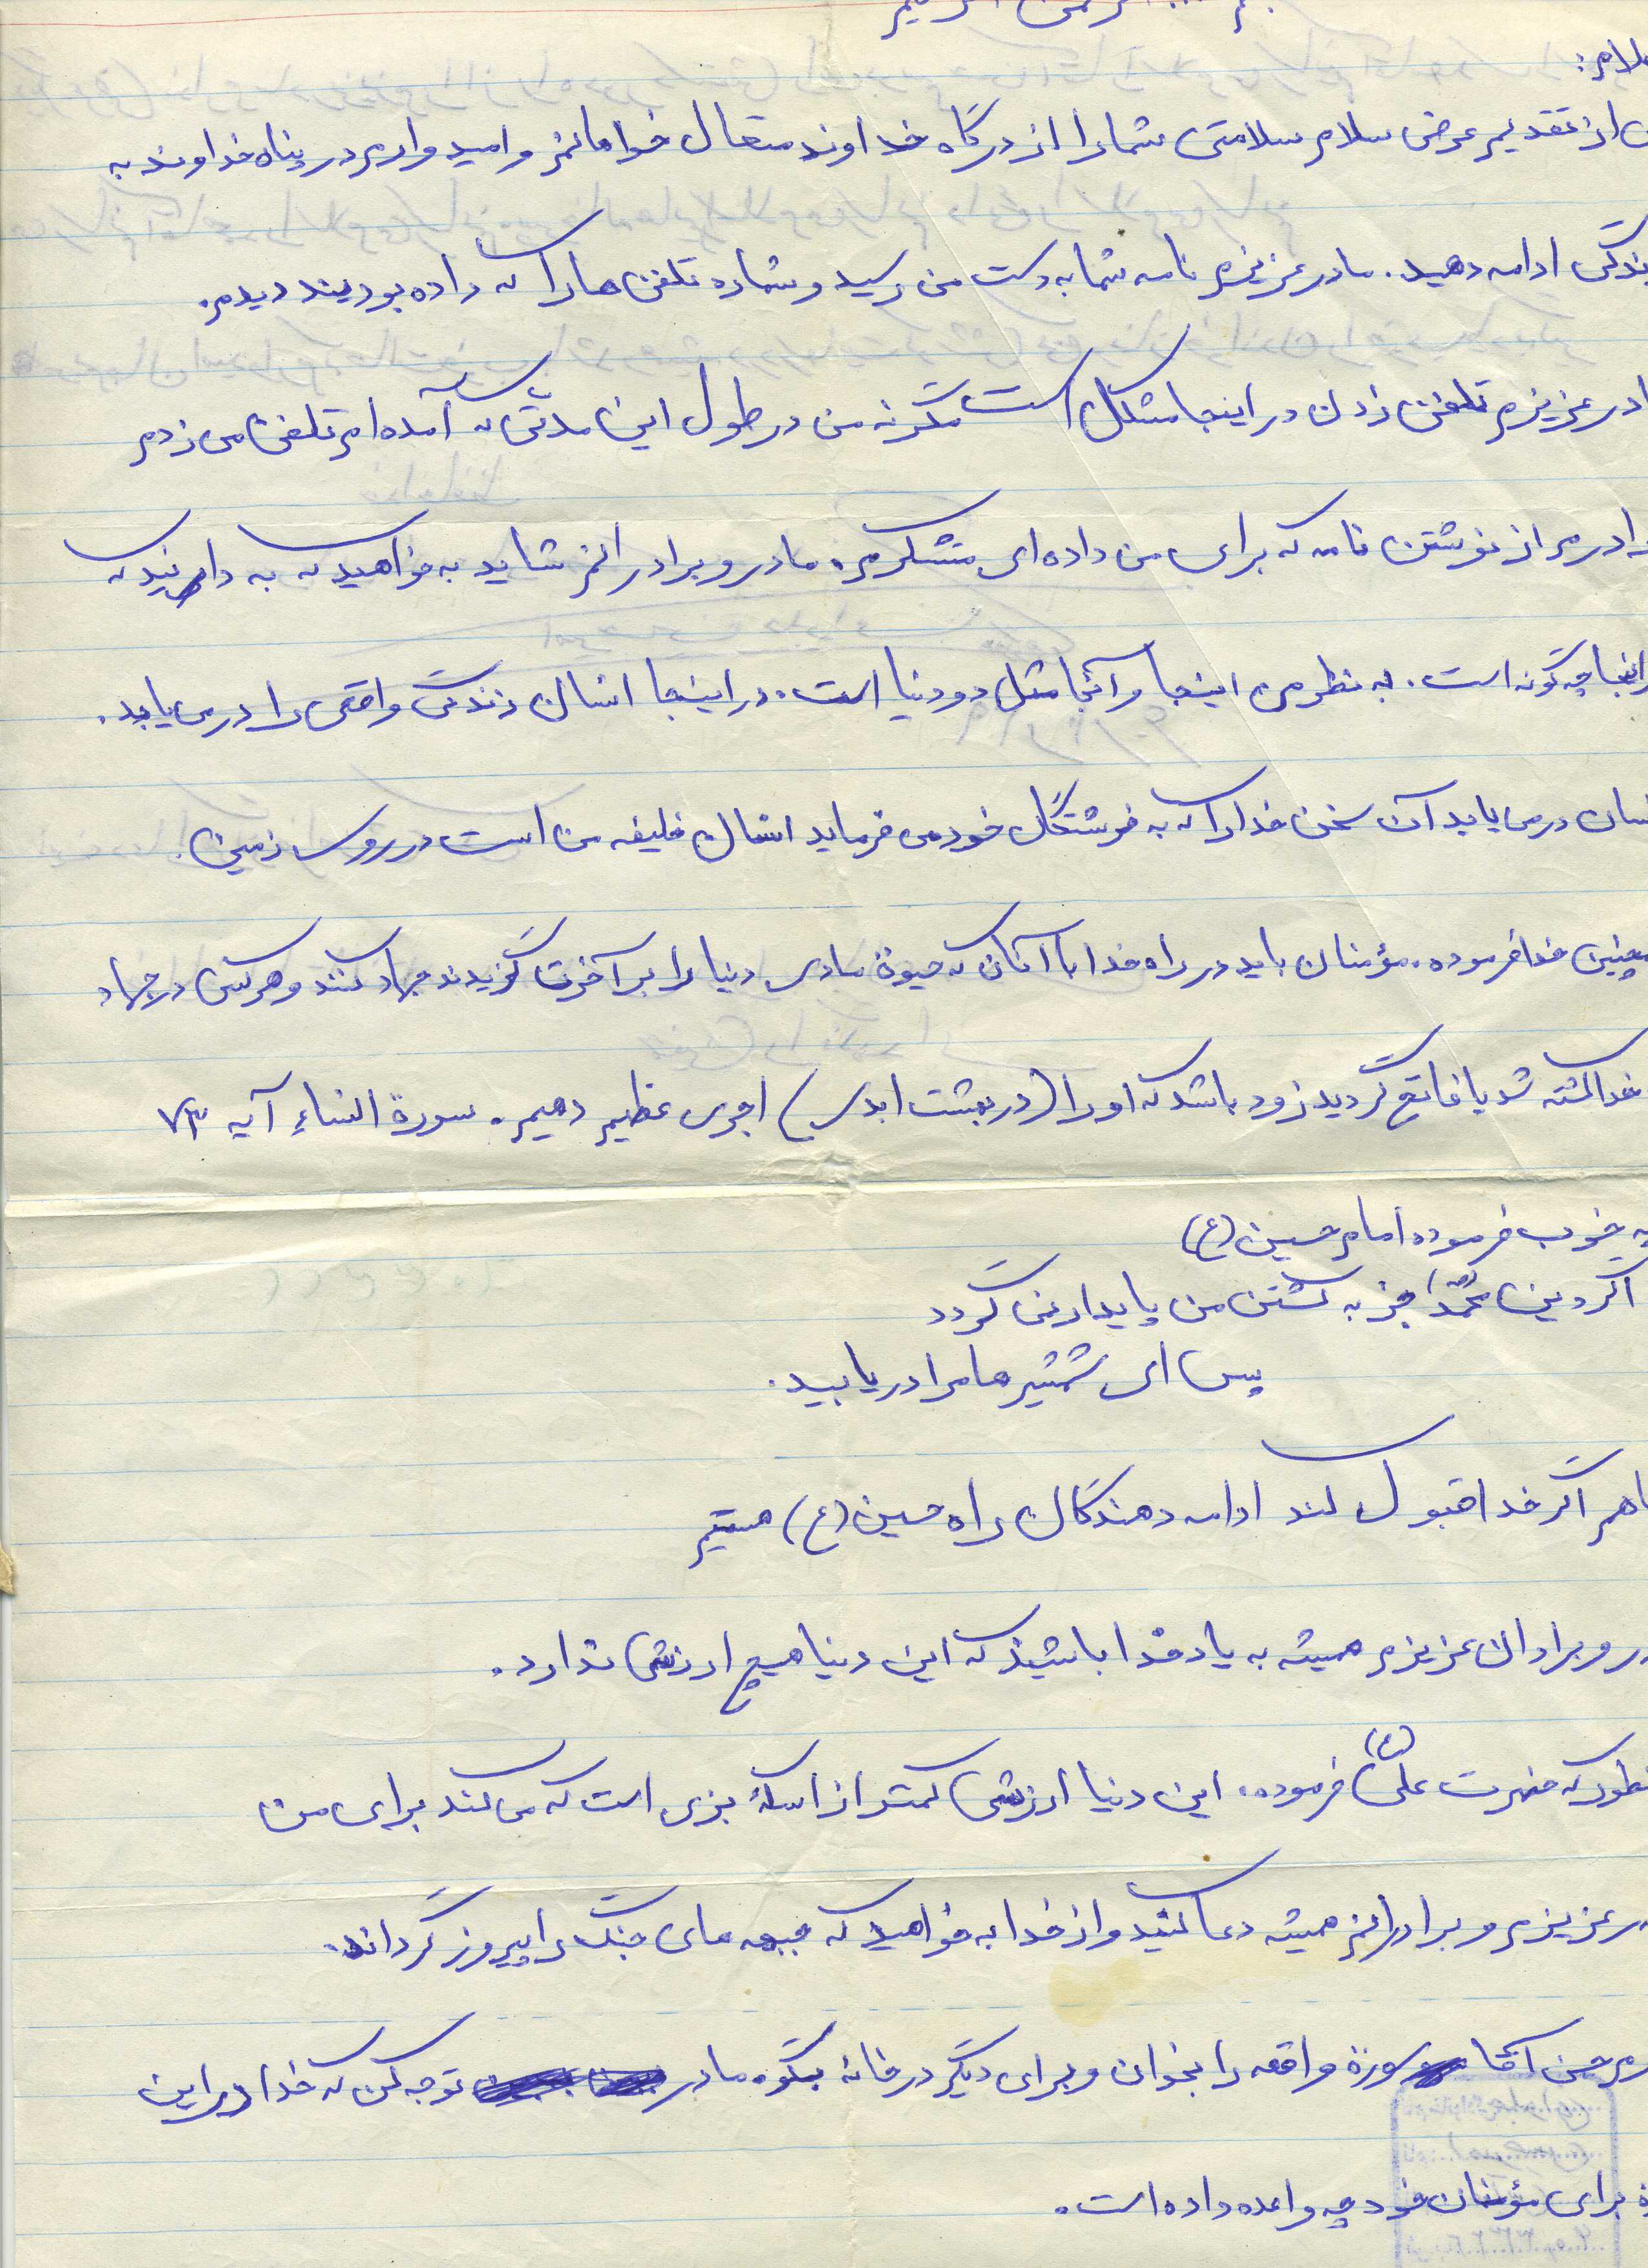 سلام:
از تقدیم عرض سلام سلامتی شما را از درگاه خداوند متعال خواهانم و امیدوارم در پناه خداوند به
زندگی ادامه دهید. مادر عزیزم نامه شما به دست من رسید و شماره تلفن ها را که داده بودیند دیدم.
مادر عزیزم تلفن زدن در اینجا مشکل است مگر نه من در طول این مدتی که آمده ام تلفن می زدم
برادرم از نوشتن نامه که برای من داده ای متشکرم. مادر و برادرانم شاید به خواهید که به دانیند که
اینجا چه گونه است. به نظر من اینجا و آنجا مثل دو دنیا است. در اینجا انسان زندگی واقعی را در می یابد.
انسان در می یابد آن سخن خدا را که به فرشتگان خود می فرماید انسان خلیفه من است در روی زمین.
همچنین خدا فرموده. مؤمنان باید در راه خدا با آنان که حیوة مادی دنیا را بر آخرت گزیدند جهاد کنند و هر کس در جهاد
خدا کشته شد یا فاتح گردید زود باشد که او را (در بهشت ابدی) اجری عظیم دهیم. سورة النساء آیه ۷۳
چه خوب فرموده امام حسین (ع)
اگر دین محمد (ص) جز به کشتن من پایدار نمی گردد
پس ای شمشیرها مرا دریابید.
ما هم اگر خدا قبول کند ادامه دهندگان راه حسین (ع) هستیم
مادر و برادران عزیزم همیشه به یاد خدا باشیند که این دنیا هیچ ارزشی ندارد.
همانطور که حضرت علی (ع) فرموده. این دنیا ارزشی کمتر از اسکهٔ بزی است که می کند برای من
مادر عزیزم و برادرانم همیشه دعا کنید و از خدا به خواهید که جبهه های جنگ را پیروز گرداند.
آقا سورة واقعه را بخوان و برای دیگر در خانه بگو. مادر توجه کن که خدا در این
سورة برای مؤمنان خود چه واعده داده است.